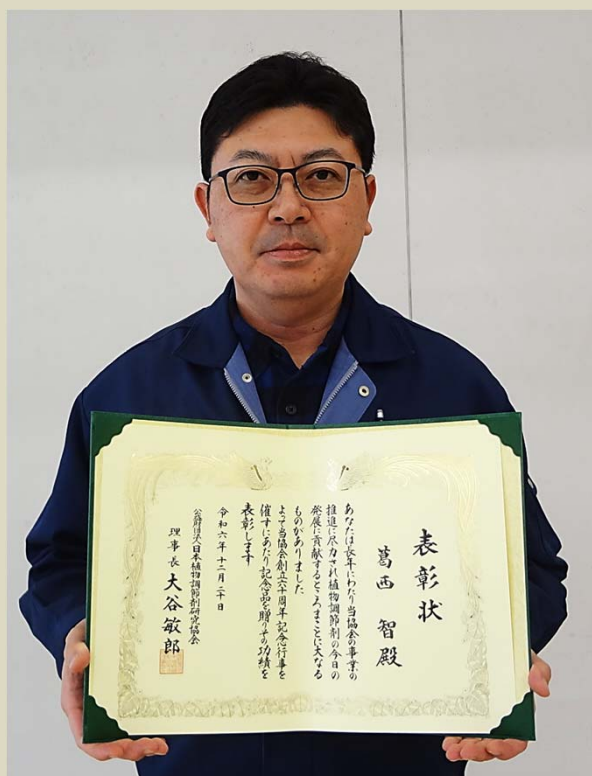 表彰状
葛西 智殿
あなたは長年にわたり当協会の事業の
推進に尽力され植物調節剤の今日の
発展に貢献するところまことに大なる
ものがありました
よって当協会創立六十周年記念行事を
催すにあたり記念品を贈りその功績を
表彰します
令和六年十二月二十日
公益財団法人日本植物調節剤研究協会
理事長 大谷敏郎